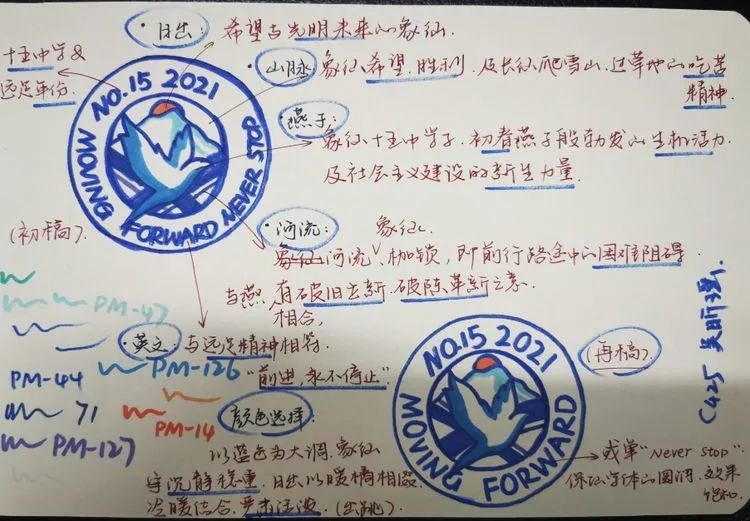 ·日出：希望与光明未来的象征.
十五中学&
远足年份.
NO.15 2021
MOVING FORWARD NEVER STOP
·山脉：象征希望、胜利、及长征爬雪山、过草地的吃苦
精神.
·燕子：
象征十五中学子，初春燕子般勃发的生机活力
及社会主义建设的新生力量.
(初稿).
·河流： 象征
河流、枷锁，即前行路途中的困难阻碍.
与燕子 有破旧立新、破陈革新之意.
相合,
·英文：与远足精神相符.
"前进,永不停止"
PM-47
PM-44
PM-126
71
PM-14
PM-127
颜色选择：
以蓝色为大调.象征
沉静稳重，日出以暖橘相缀
冷暖结合.
(出跳).
NO.15 2021
MOVING FORWARD
(再稿).
"Never stop"
保证字体的圆润.效果
C425